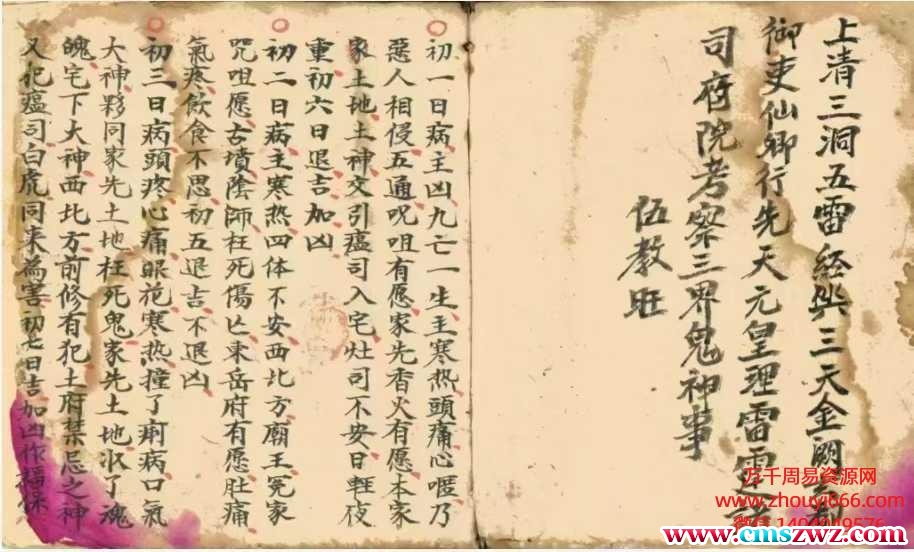 上清三洞五雷經籙三天金闕
御吏仙卿行先天元皇理雷霆
司府院考察三界鬼神事
伍教旺
初一日病主凶九亡一生主寒热頭痛心啀乃
惡人相侵五通呪咀有愿家先香火有愿本家
家土地土神交引瘟司入宅灶司不安日輕夜
重初六日退吉加凶
初二日病主寒热四体不安西北方廟王冤家
咒咀愿古墳陰師枉死傷亡東岳府有愿肚痛
氣疼飲食不思初五退吉不退凶
初三日病頭疼心痛眼花寒热撞了痢病口氣
大神夥同家先土地枉死鬼家先土地收了魂
魄宅下大神西北方前修有犯土府禁忌之神
又犯瘟司白虎同来為害初七日吉加凶作福保
万千周易资源网
www.zhouyi666.com
微信 1404049576
www.cmszwz.com